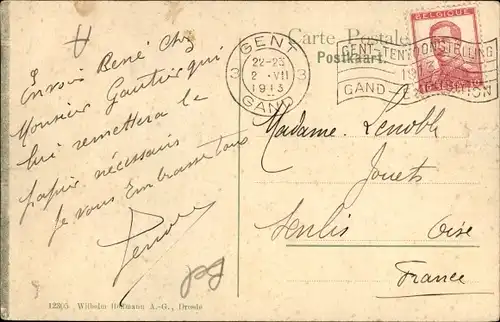 Carte Postale
Postkaart
GENT
22-23
3 2 · VII 3
1913
GAND
GENT-TENTOONSTELLING
1913
GAND EXPOSITION
BELGIQUE
Envoie René chez
Monsieur Gautier qui
lui remettera le
papier nécessaire
Je vous Embrasse tous
Madame Lenoble
Jouets
Senlis Oise
France
12305 Wilhelm Hoffmann A.-G., Dresde